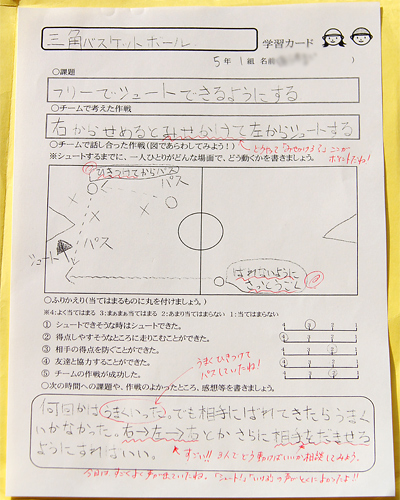 三角バスケットボール
学習カード
5年 1組 名前
○課題
フリーでシュートできるようにする
○チームで考えた作戦
右からせめるとみせかけて左からシュートする
○チームで話し合った作戦(図であらわしてみよう!)
どうやって「みせかける?」ここがポイントだね!
※シュートするまでに、一人ひとりがどんな場面で、どう動くかを書きましょう。
ひきつけてからパス
パス
パス
シュート
ばれないように
さっとうごく
○ふりかえり(当てはまるものに丸を付けましょう。)
※4:よく当てはまる 3:まぁまぁ当てはまる 2:あまり当てはまらない 1:当てはまらない
① シュートできそうな時はシュートできた。
② 得点しやすそうなところに走りこむことができた。
③ 相手の得点を防ぐことができた。
④ 友達と協力することができた。
⑤ チームの作戦が成功した。
うまくひきつけて
パスしていたね!
○次の時間への課題や、作戦のよかったところ、感想等を書きましょう。
何回かはうまくいった。でも相手にばれてきたらうまく
いかなかった。右→左→右とかさらに相手をだませる
ようにすればいい。
すごい!! 3人でどう動けばいいか相談してみよう。
今日はすごくよく声が出ていたね。「シュート!」「いけ!」の声がとてもよかったよ!!